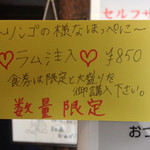 〜リンゴの様なほっぺに〜
♡ラム注入♡ ¥850
食券は限定と大盛りを
御購入下さい。
数量限定
セルフサ
おつ